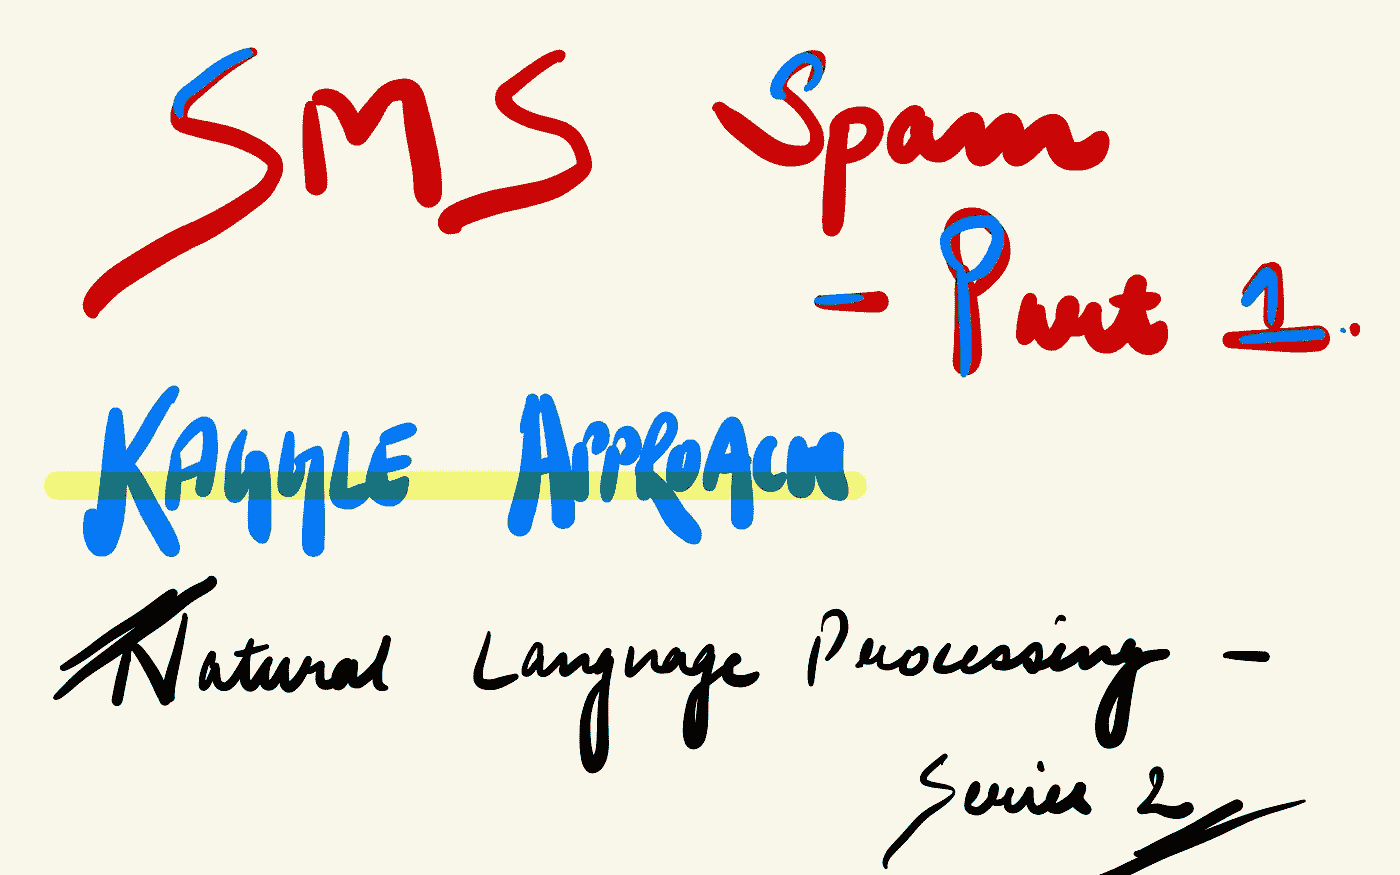 SMS Spam
- Part 1.
KAGGLE APPROACH
Natural Language Processing -
Series 2